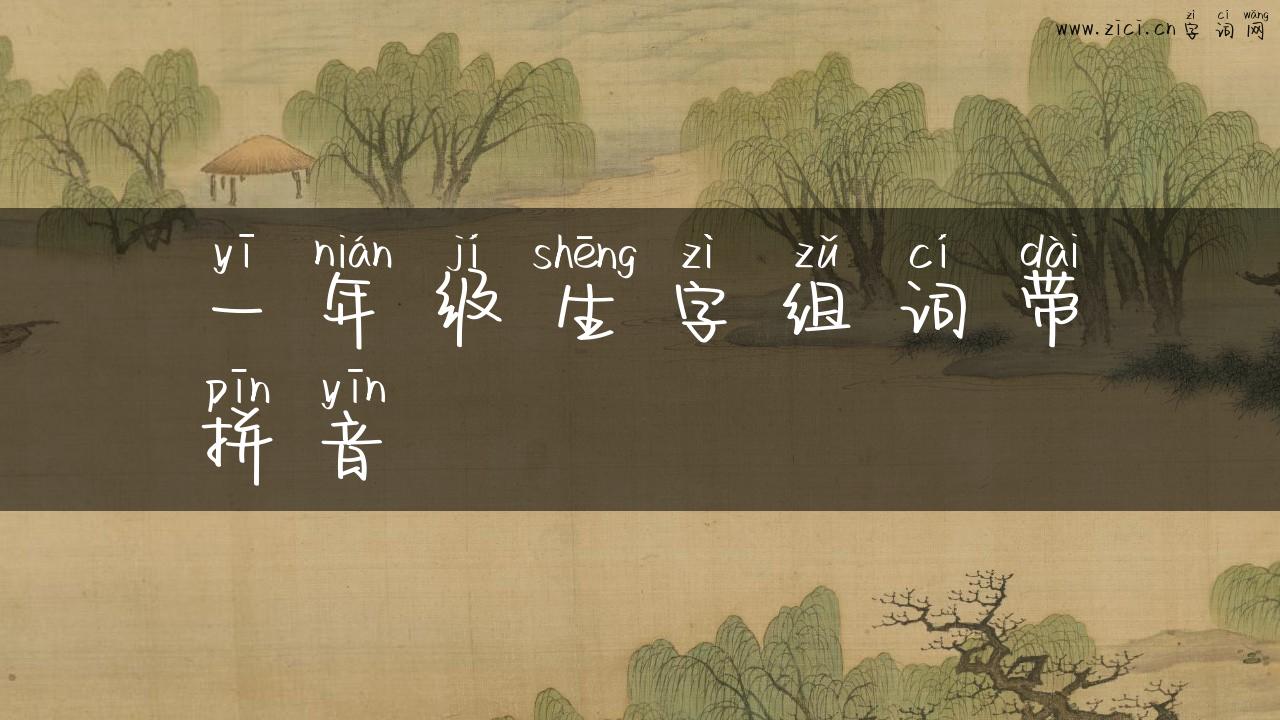 zì cí wǎng
www.zici.cn 字 词 网
yī nián jí shēng zì zǔ cí dài
一 年 级 生 字 组 词 带
pīn yīn
拼 音